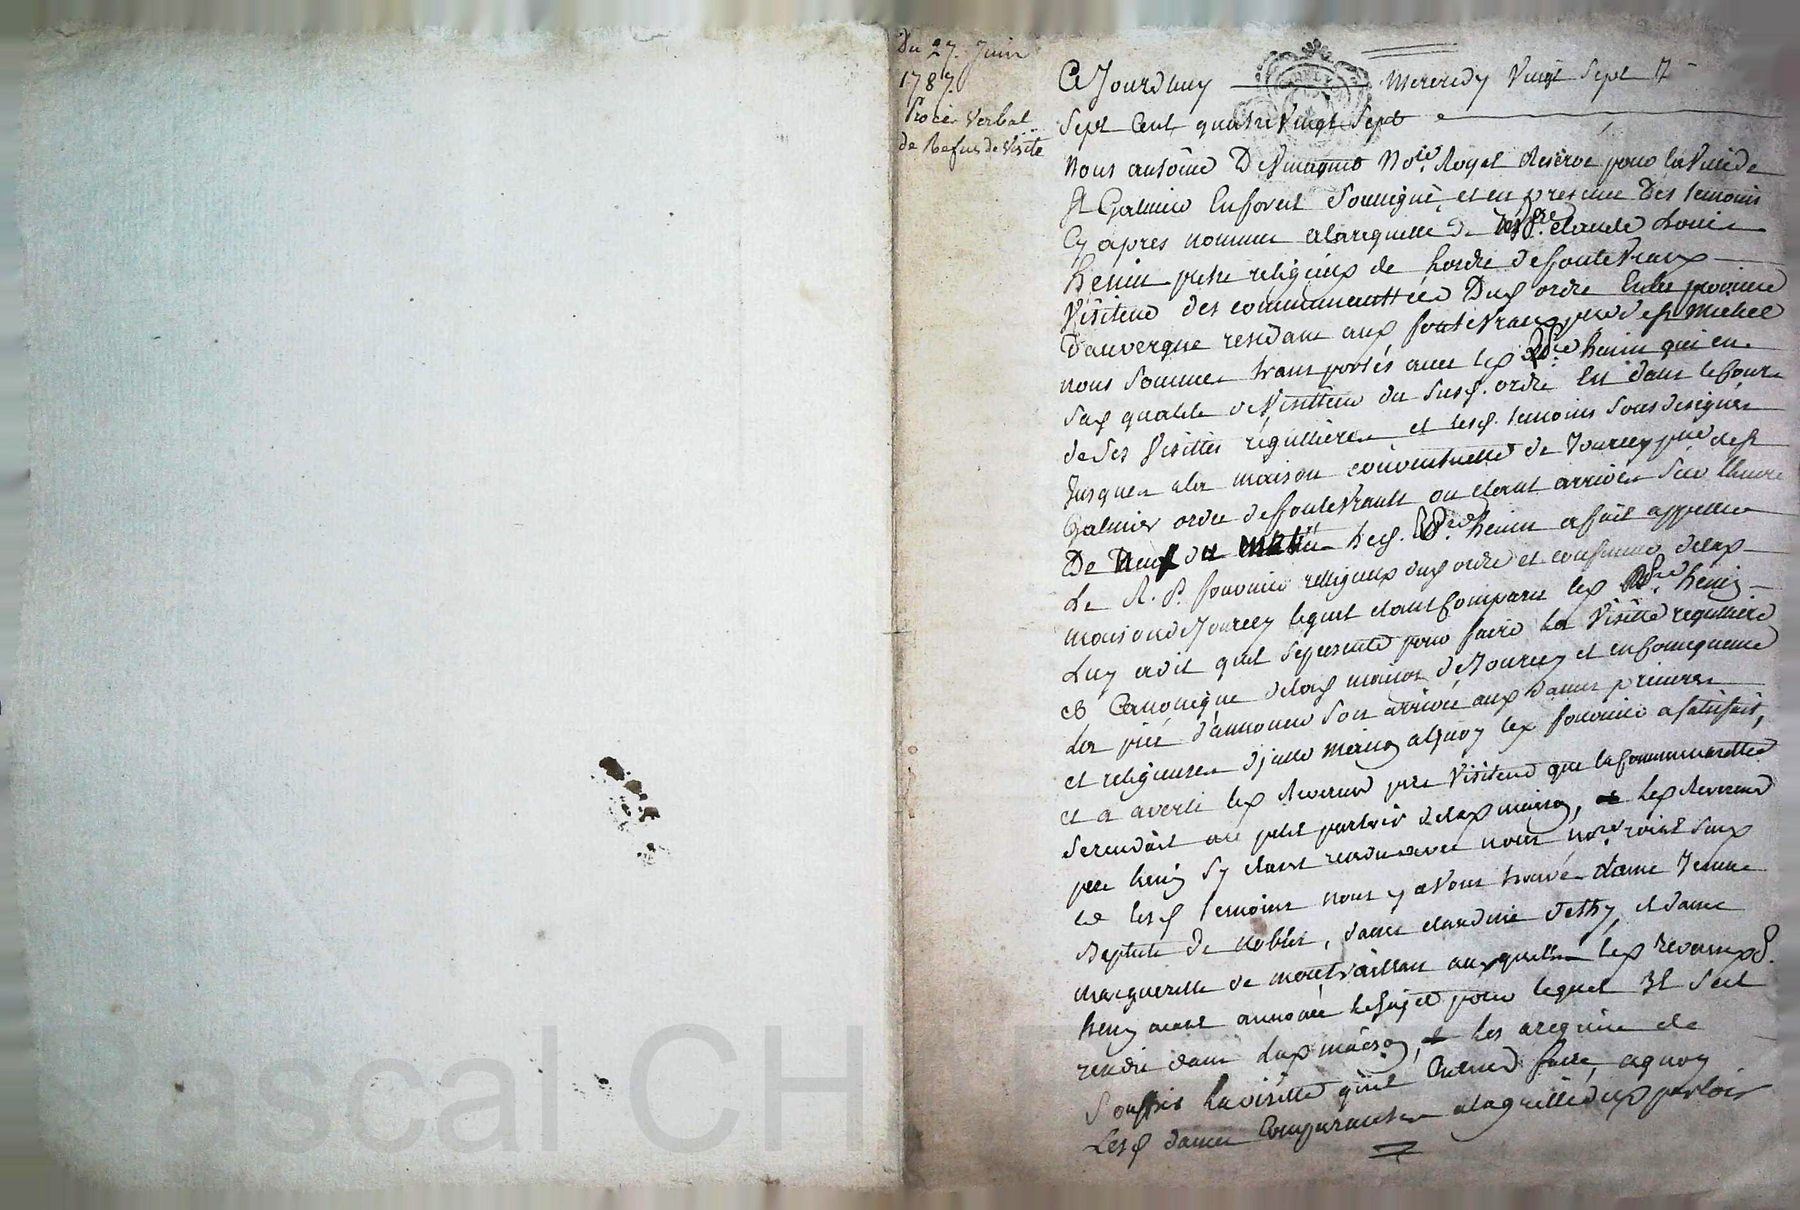 Du 27. Juin
1787.
Procès Verbal
de Refus de Visite
Ce Jourdhuy Mercredy Vingt Sept
Sept Cent quatre Vingt Sept
Nous antoine No.re Royal Reservé pour la Ville de
St Galmier en forest Soussigné, et en presence Des temoins
Cy apres nommés a la requette de claude Louis
henin pretre religieux de Lordre de fontevraux
Visiteur des communauttées Dud ordre En la province
D'auvergne residant aux fontevraux de St Michel
nous sommes transportés avec led henin qui en
sad qualité de Visitteur du Susd. ordre Et dans le Cours
de Ses Visittes régullieres et lesd. temoins sous designés
Jusques a la maison conventuelle de Jourcey de St
Galmier ordre de fontevrault ou étant arrivés sur lheure
De Neuf du matin Led. henin a fait appeller
Le R. P. religieux dud ordre et de lad
maison de Jourcey lequel étant Comparu led henin
Luy a dit quil se presente pour faire La Visitte regulliere
et Canonique de lad maison de Jourcey et en Consequence
La prié d'annoncer Son arrivée aux dames prieures
et religieuses d'jcelle maison a quoy led a satisfait,
et a averti led Reverend pere Visiteur que la Communautté
se rendoit au petit parloir de lad maison, led Reverend
pere henin sy étant rendu avec nous no.re
et lesd temoins nous y avons trouvé dame Jeanne
Baptiste de nobles, dame claudine et dame
Marguerite de montvaillant auxquelles led Reverend P.
henin ayant annoncé le Sujet pour lequel Il Sest
rendu dans lad maison, Les a requise de
Souffrir la visitte quil Entend faire, a quoy
Lesd dames Comparantes a la grille dud parloir
ascal CH